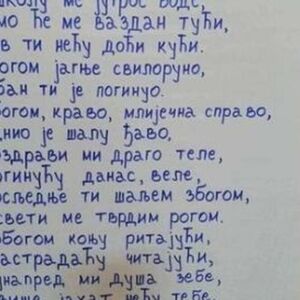 школу ме јутрос воде,
мо ће ме ваздан тући,
в ти нећу доћи кући.
огом јагње свилоруно,
бан ти је погинуо.
богом, краво, млијечна справо,
днио је шалу ђаво,
оздрави ми драго теле,
огинућу данас, веле,
осљедње ти шаљем збогом,
свети ме тврдим рогом.
збогом коњу ритајући,
астрадаћу читајући,
унапред ми душа зебе,
јахат нећу тебе